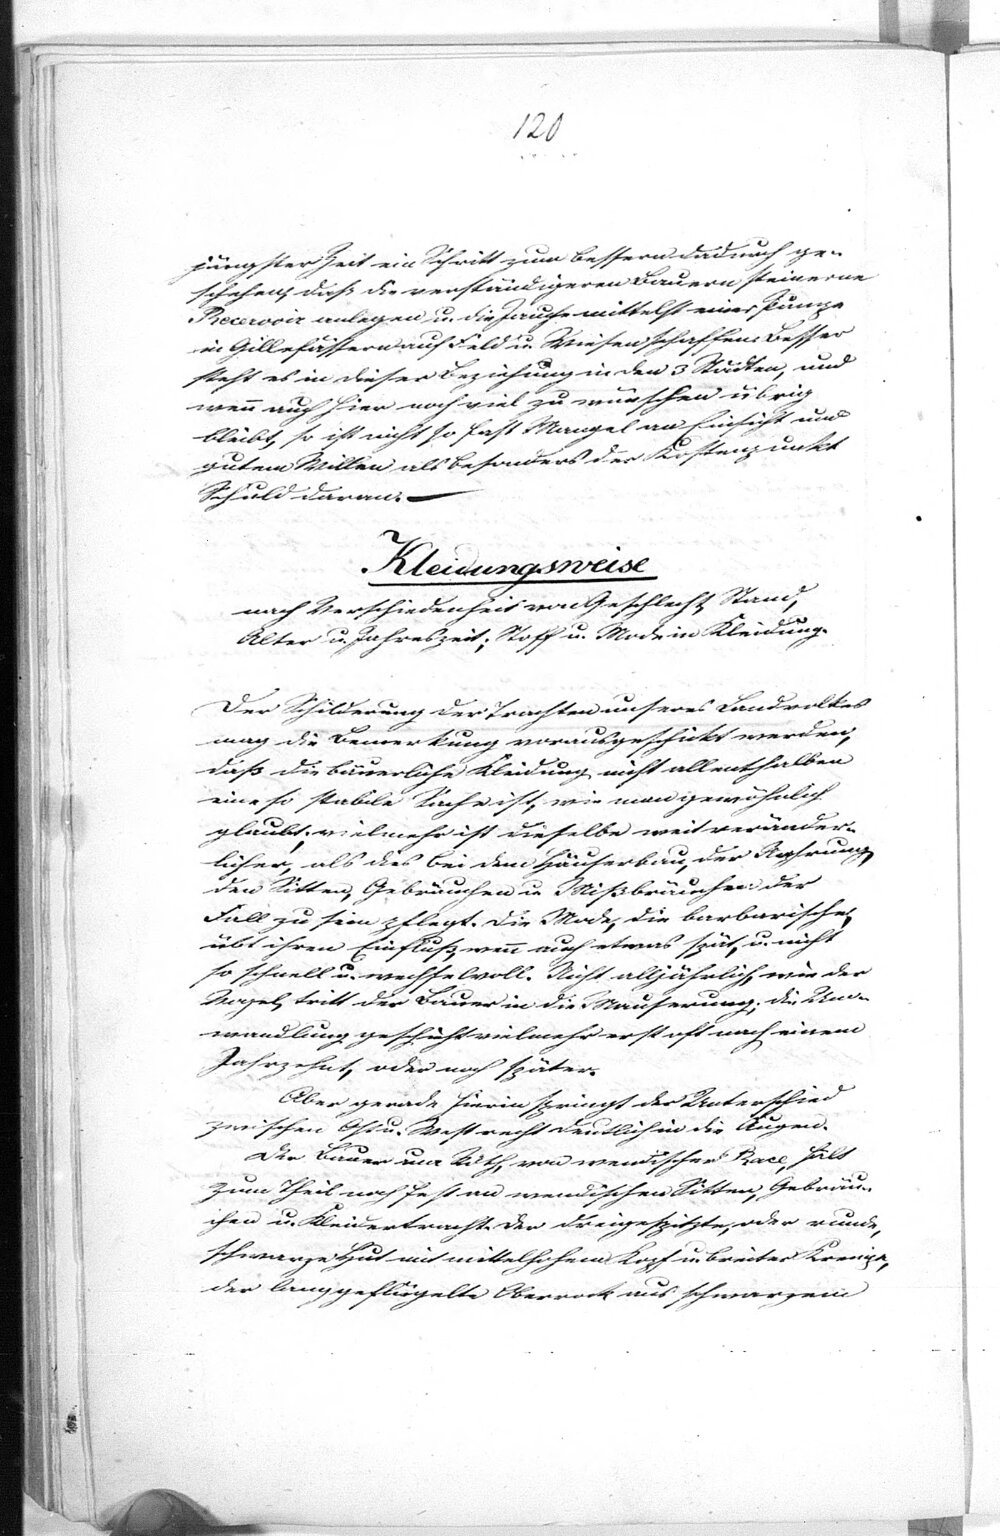 120
jüngster Zeit ein Schritt zum Bessern dadurch ge-
schehen, daß die verständigeren Bauern steinerne
Recervoir anlegen u. die Jauche mittelst einer Pumpe
in Gillefässern auf Feld u. Wiesen schaffen. Besser
steht es in dieser Beziehung in den 3 Städten, und
wen̄ auch hier noch viel zu wünschen übrig
bleibt, so ist nicht so fast Mangel an Einsicht und
gutem Willen als besonders der Kostenpunkt
Schuld daran. —
Kleidungsweise
nach Verschiedenheit von Geschlecht, Stand,
Alter u. Jahreszeit; Stoff u. Mode in Kleidung.
Der Schilderung der Trachten unseres Landvolkes
mag die Bemerkung vorausgeschickt werden,
daß die bäuerliche Kleidung nicht allenthalben
eine so stabile Sache ist, wie man gewöhnlich
glaubt, vielmehr ist dieselbe weit veränder-
licher, als dies bei dem Häuserbau, der Nahrung,
den Sitten, Gebräuchen u. Mißbräuchen der
Fall zu sein pflegt. Die Mode, die barbarische,
übt ihren Einfluß, wen̄ auch etwas spät, u. nicht
so schnell u. wechselvoll. Nicht alljährlich, wie der
Vogel, tritt der Bauer in die Mauserung; die Um-
wandlung geschieht vielmehr erst oft nach einem
Jahrzehnt, oder noch später.
Aber gerade hierin springt der Unterschied
zwischen Ost u. West recht deutlich in die Augen.
Der Bauer um Röth, von wendischer Race, hält
zum Theil noch fest an wendischen Sitten, Gebräu-
chen u. Kleidertracht. Der dreigespitzte, oder runde,
schwarze Hut mit mittelhohem Kopf u. breiter Krempe,
der langgeflügelte Oberrock aus schwarzem